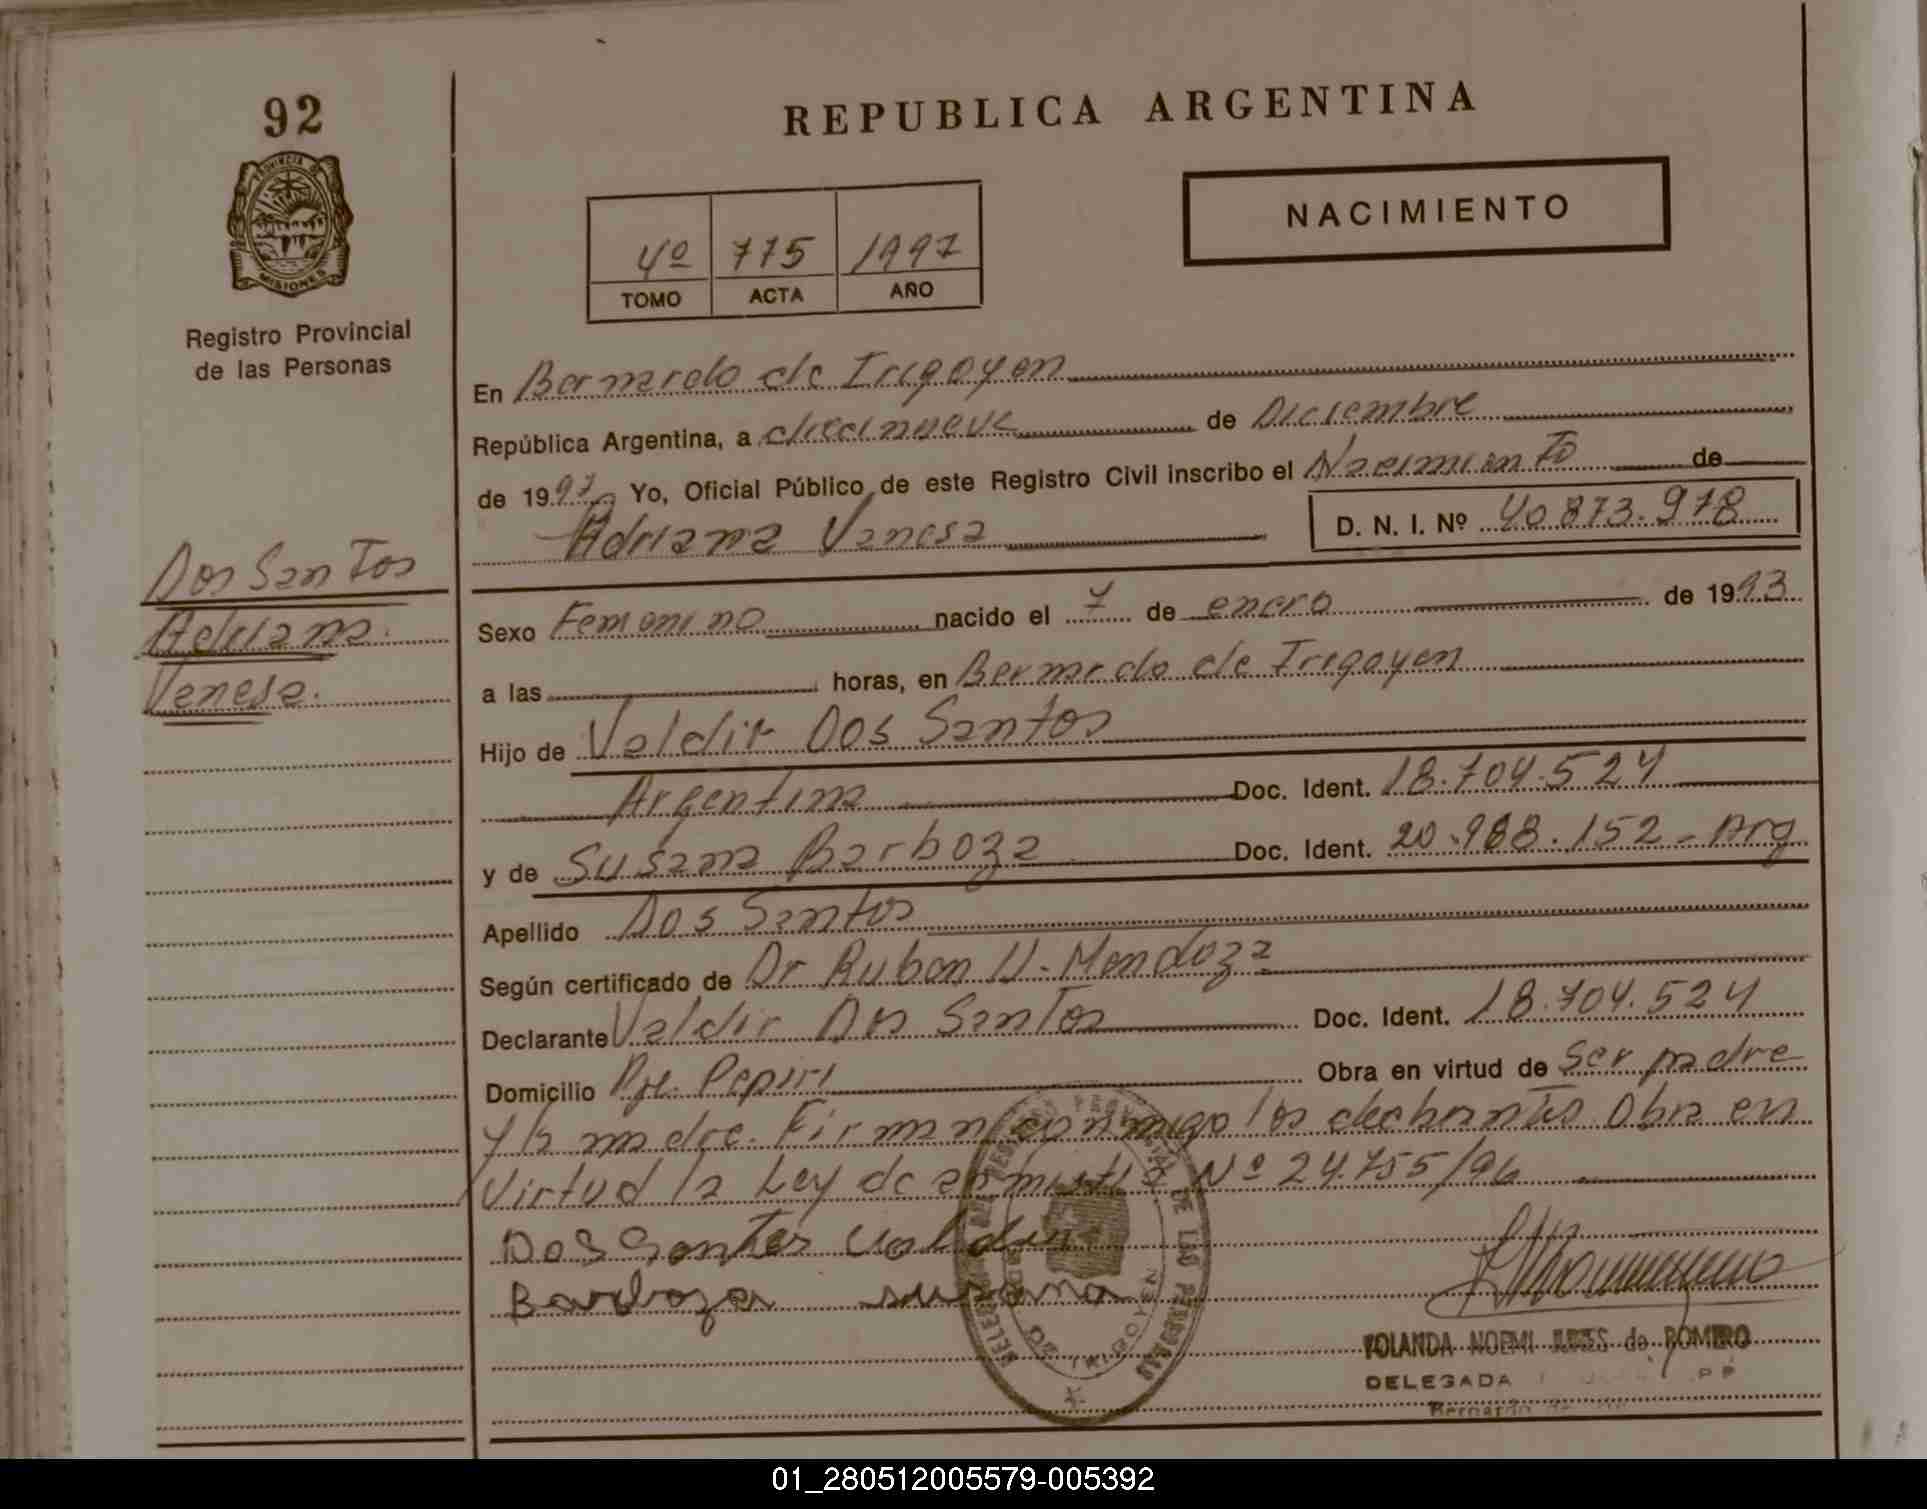 92
PROVINCIA D
MISIONES
Registro Provincial
de las Personas
Dos Santos
Adriana
Vanesa.
REPUBLICA ARGENTINA
NACIMIENTO
4º 775 1997
TOMO ACTA AÑO
En Bernardo de Irigoyen
República Argentina, a diecinueve de Diciembre
de 1997 Yo, Oficial Público de este Registro Civil inscribo el Nacimiento de
Adriana Vanesa D. N. I. Nº 40.873.978
Sexo Femenino nacido el 7 de enero de 1993
a las horas, en Bernardo de Irigoyen
Hijo de Valdir Dos Santos
Argentina Doc. Ident. 18.704.524
y de Susana Barboza Doc. Ident. 20.988.152 - Arg
Apellido Dos Santos
Según certificado de Dr Ruben U. Mendoza
Declarante Valdir Dos Santos Doc. Ident. 18.704.524
Domicilio Pje. Pepiri Obra en virtud de ser padre
y la madre. Firman conmigo los declarantes Obra en
Virtud la Ley de amnistia Nº 24.755/96
Dos Santos Valdir
Barboza susana
DE LAS PERSONAS
DE IRIGOYEN
YOLANDA NOEMI de ROMERO
DELEGADA
Bernardo de
01_280512005579-005392